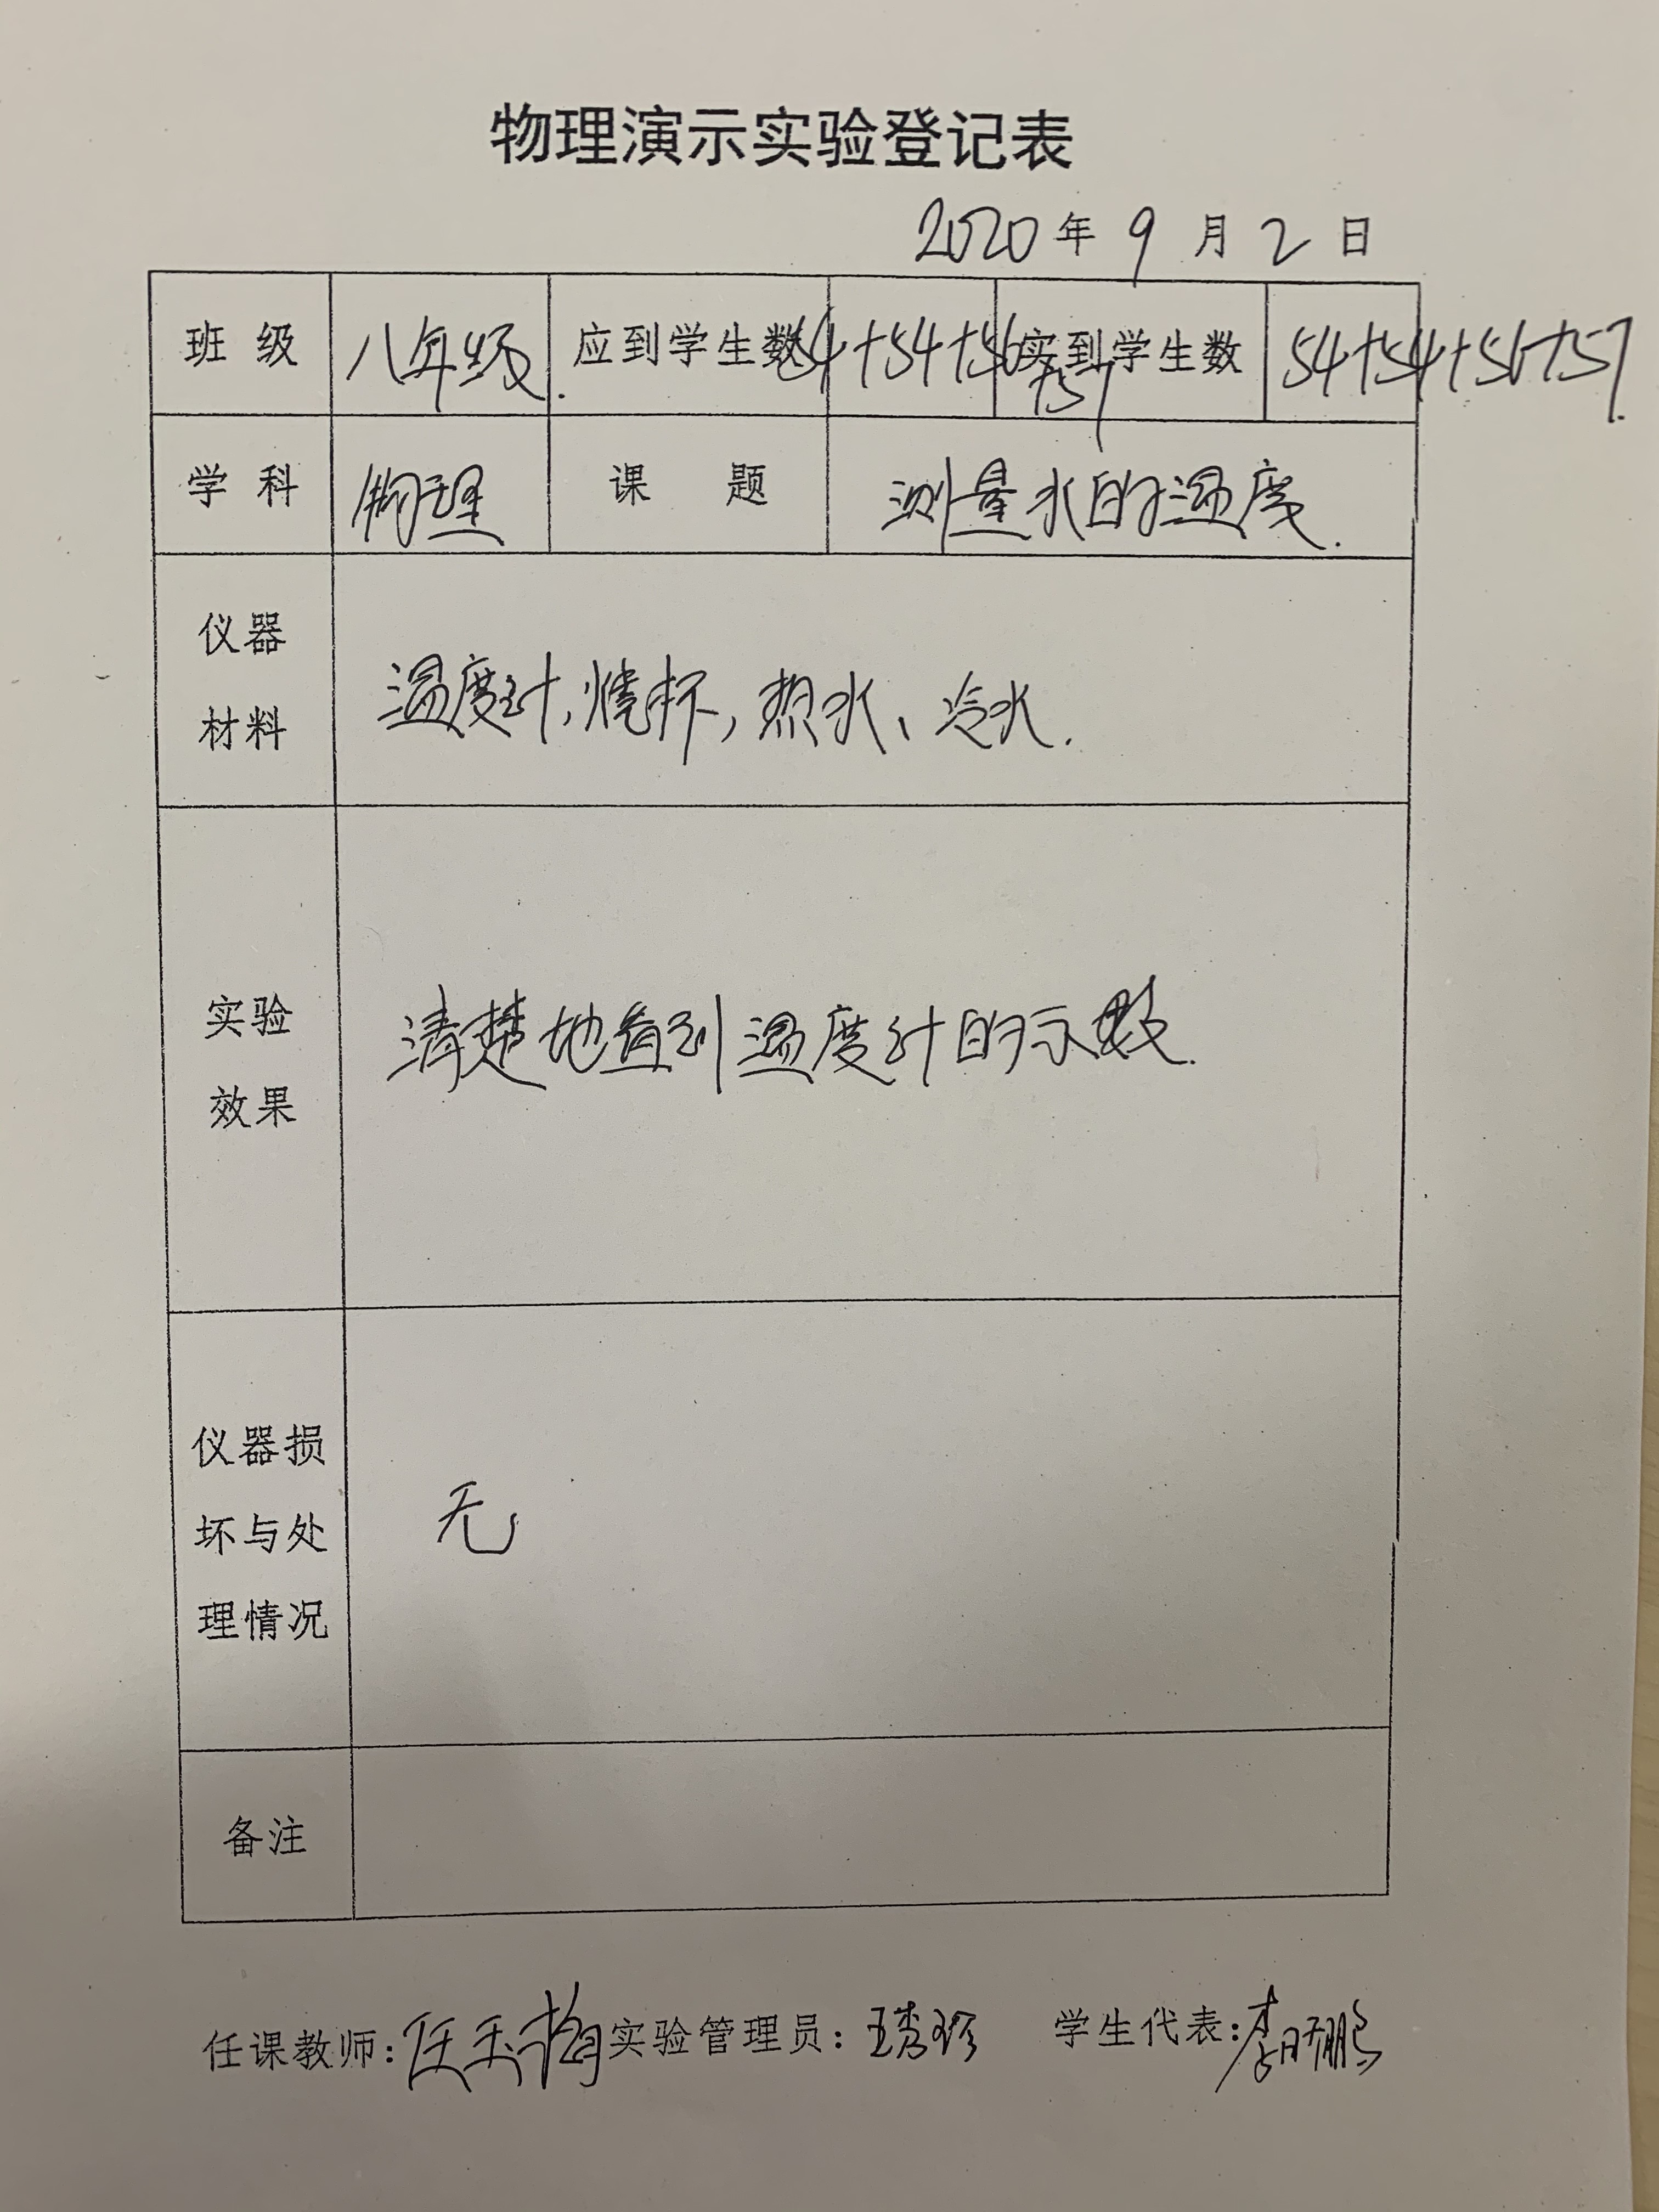 物理演示实验登记表
2020年9月2日
班 级 八年级. 应到学生数 54+54+56+57 实到学生数 54+54+56+57.
学 科 物理 课 题 测量水的温度.
仪器
材料
温度计,烧杯,热水、冷水.
实验
效果
清楚地看到温度计的示数.
仪器损
坏与处
理情况
无
备注
任课教师:任玉梅 实验管理员:王秀珍 学生代表:李鹏